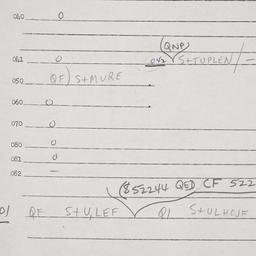 040 0
(QNP)
041 0 042 S+TUPLEN/-
050 QF) S+MURE
060 0
070 0
080 0
081 0
082 -
($52244 QED CF 522
01 QF S+U,LEF QI S+ULHOJF